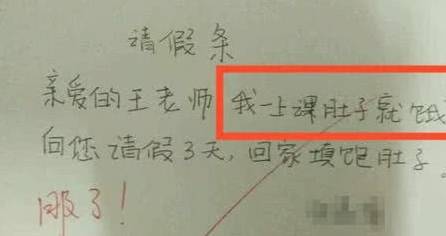 请假条
亲爱的王老师 我一上课肚子就饿
向您请假3天，回家填饱肚子。
服了！